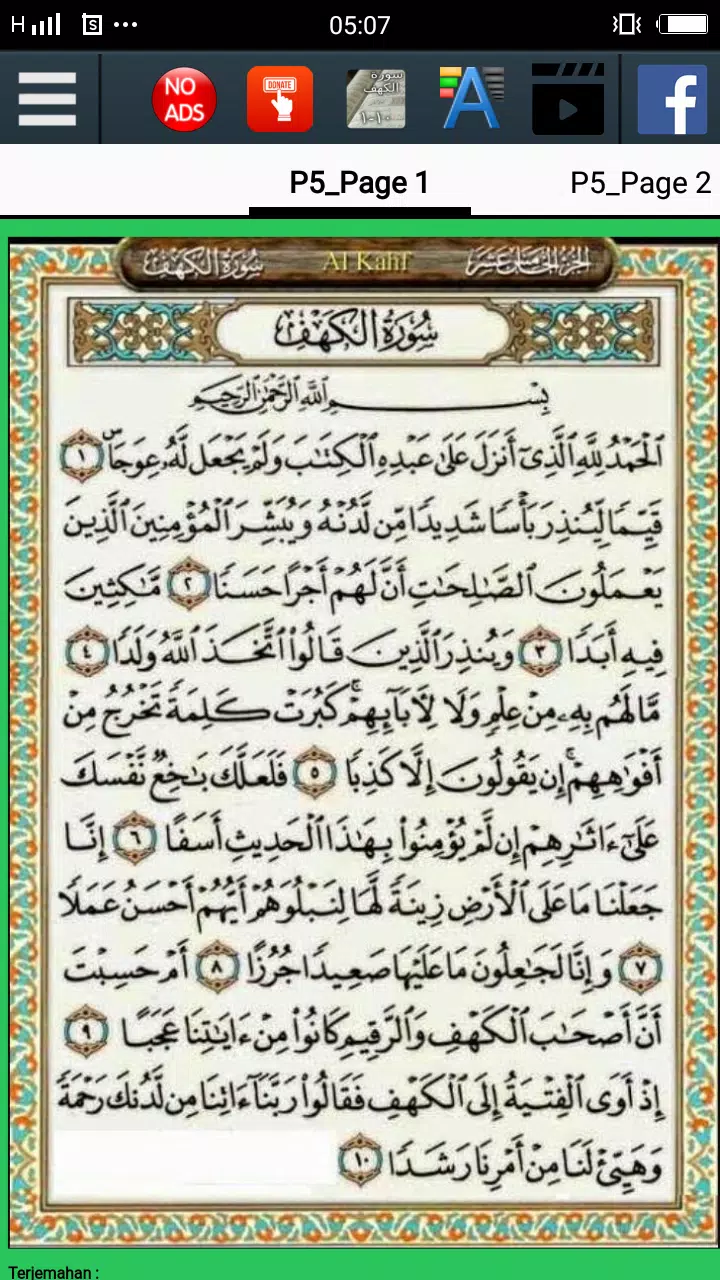 H 05:07
NO ADS
DONATE
سورة الكهف
١-١٠
A
f
P5_Page 1 P5_Page 2
سُورَةُ الكَهْفِ Al Kahf الجُزْءُ الخَامِسَ عَشَرَ
سُورَةُ الكَهْفِ
بِسْمِ اللَّهِ الرَّحْمَٰنِ الرَّحِيمِ
الْحَمْدُ لِلَّهِ الَّذِي أَنزَلَ عَلَىٰ عَبْدِهِ الْكِتَابَ وَلَمْ يَجْعَل لَّهُ عِوَجًا ۜ ١
قَيِّمًا لِّيُنذِرَ بَأْسًا شَدِيدًا مِّن لَّدُنْهُ وَيُبَشِّرَ الْمُؤْمِنِينَ الَّذِينَ
يَعْمَلُونَ الصَّالِحَاتِ أَنَّ لَهُمْ أَجْرًا حَسَنًا ٢ مَّاكِثِينَ
فِيهِ أَبَدًا ٣ وَيُنذِرَ الَّذِينَ قَالُوا اتَّخَذَ اللَّهُ وَلَدًا ٤
مَّا لَهُم بِهِ مِنْ عِلْمٍ وَلَا لِآبَائِهِمْ ۚ كَبُرَتْ كَلِمَةً تَخْرُجُ مِنْ
أَفْوَاهِهِمْ ۚ إِن يَقُولُونَ إِلَّا كَذِبًا ٥ فَلَعَلَّكَ بَاخِعٌ نَّفْسَكَ
عَلَىٰ آثَارِهِمْ إِن لَّمْ يُؤْمِنُوا بِهَٰذَا الْحَدِيثِ أَسَفًا ٦ إِنَّا
جَعَلْنَا مَا عَلَى الْأَرْضِ زِينَةً لَّهَا لِنَبْلُوَهُمْ أَيُّهُمْ أَحْسَنُ عَمَلًا
٧ وَإِنَّا لَجَاعِلُونَ مَا عَلَيْهَا صَعِيدًا جُرُزًا ٨ أَمْ حَسِبْتَ
أَنَّ أَصْحَابَ الْكَهْفِ وَالرَّقِيمِ كَانُوا مِنْ آيَاتِنَا عَجَبًا ٩
إِذْ أَوَى الْفِتْيَةُ إِلَى الْكَهْفِ فَقَالُوا رَبَّنَا آتِنَا مِن لَّدُنكَ رَحْمَةً
وَهَيِّئْ لَنَا مِنْ أَمْرِنَا رَشَدًا ١٠
Terjemahan :